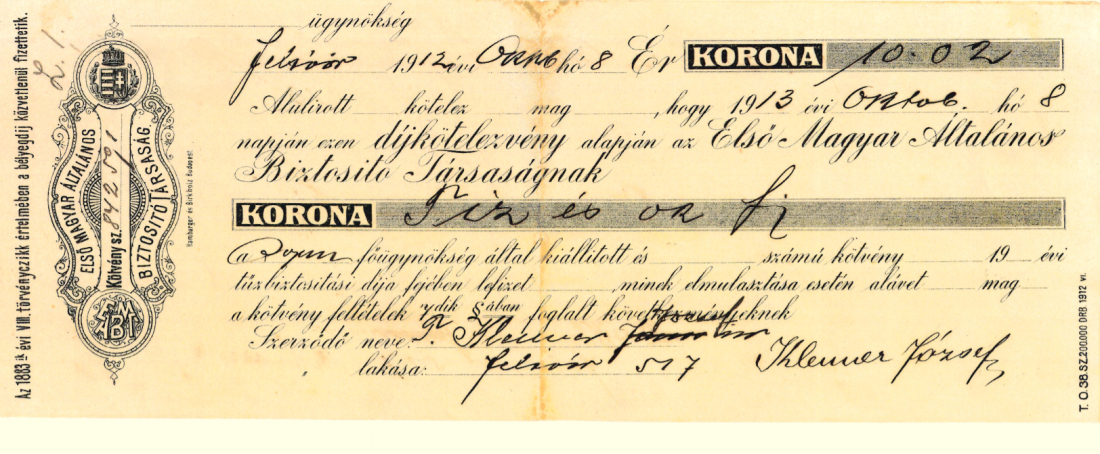 Az 1883ik évi VIII. törvényczikk értelmében a bélyegdij közvetlenül fizettetik.
L. 1.
ELSŐ MAGYAR ÁLTALÁNOS
Kötvény sz.
BIZTOSITÓ TÁRSASÁG.
EMABT
Hamburger és Birkholz Budapest
ügynökség
1912 évi Oktob hó 8 Ér KORONA 10.02
Alulirott kötelez mag , hogy 1913 évi Oktob. hó 8
napján ezen díjkötelezvény alapján az Első Magyar Általános
Biztosító Társaságnak
KORONA Tiz és 02 f
a főügynökség által kiállitott és számú kötvény 19 évi
tűzbiztositási díja fejében lefizet , minek elmulasztása esetén alávet mag
a kötvény feltételek 7dik §ában foglalt következményeknek
Szerződő neve: T. Klemer
lakása: 517 Klemer József
T. O. 38. SZ. 200000 DRB 1912 VI.